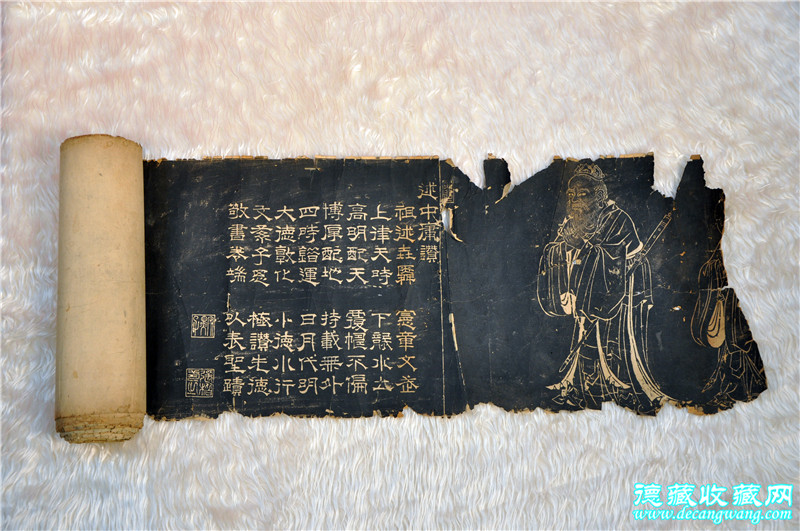 述中庸讚
祖述堯舜 憲章文武
上律天時 下襲水土
高明配天 覆幬不偏
博厚配地 持載無外
四時錯運 日月代明
大德敦化 小德水行
文子思 極讚德
敬書卷端 以表聖蹟
德藏收藏网
www.decangwang.com